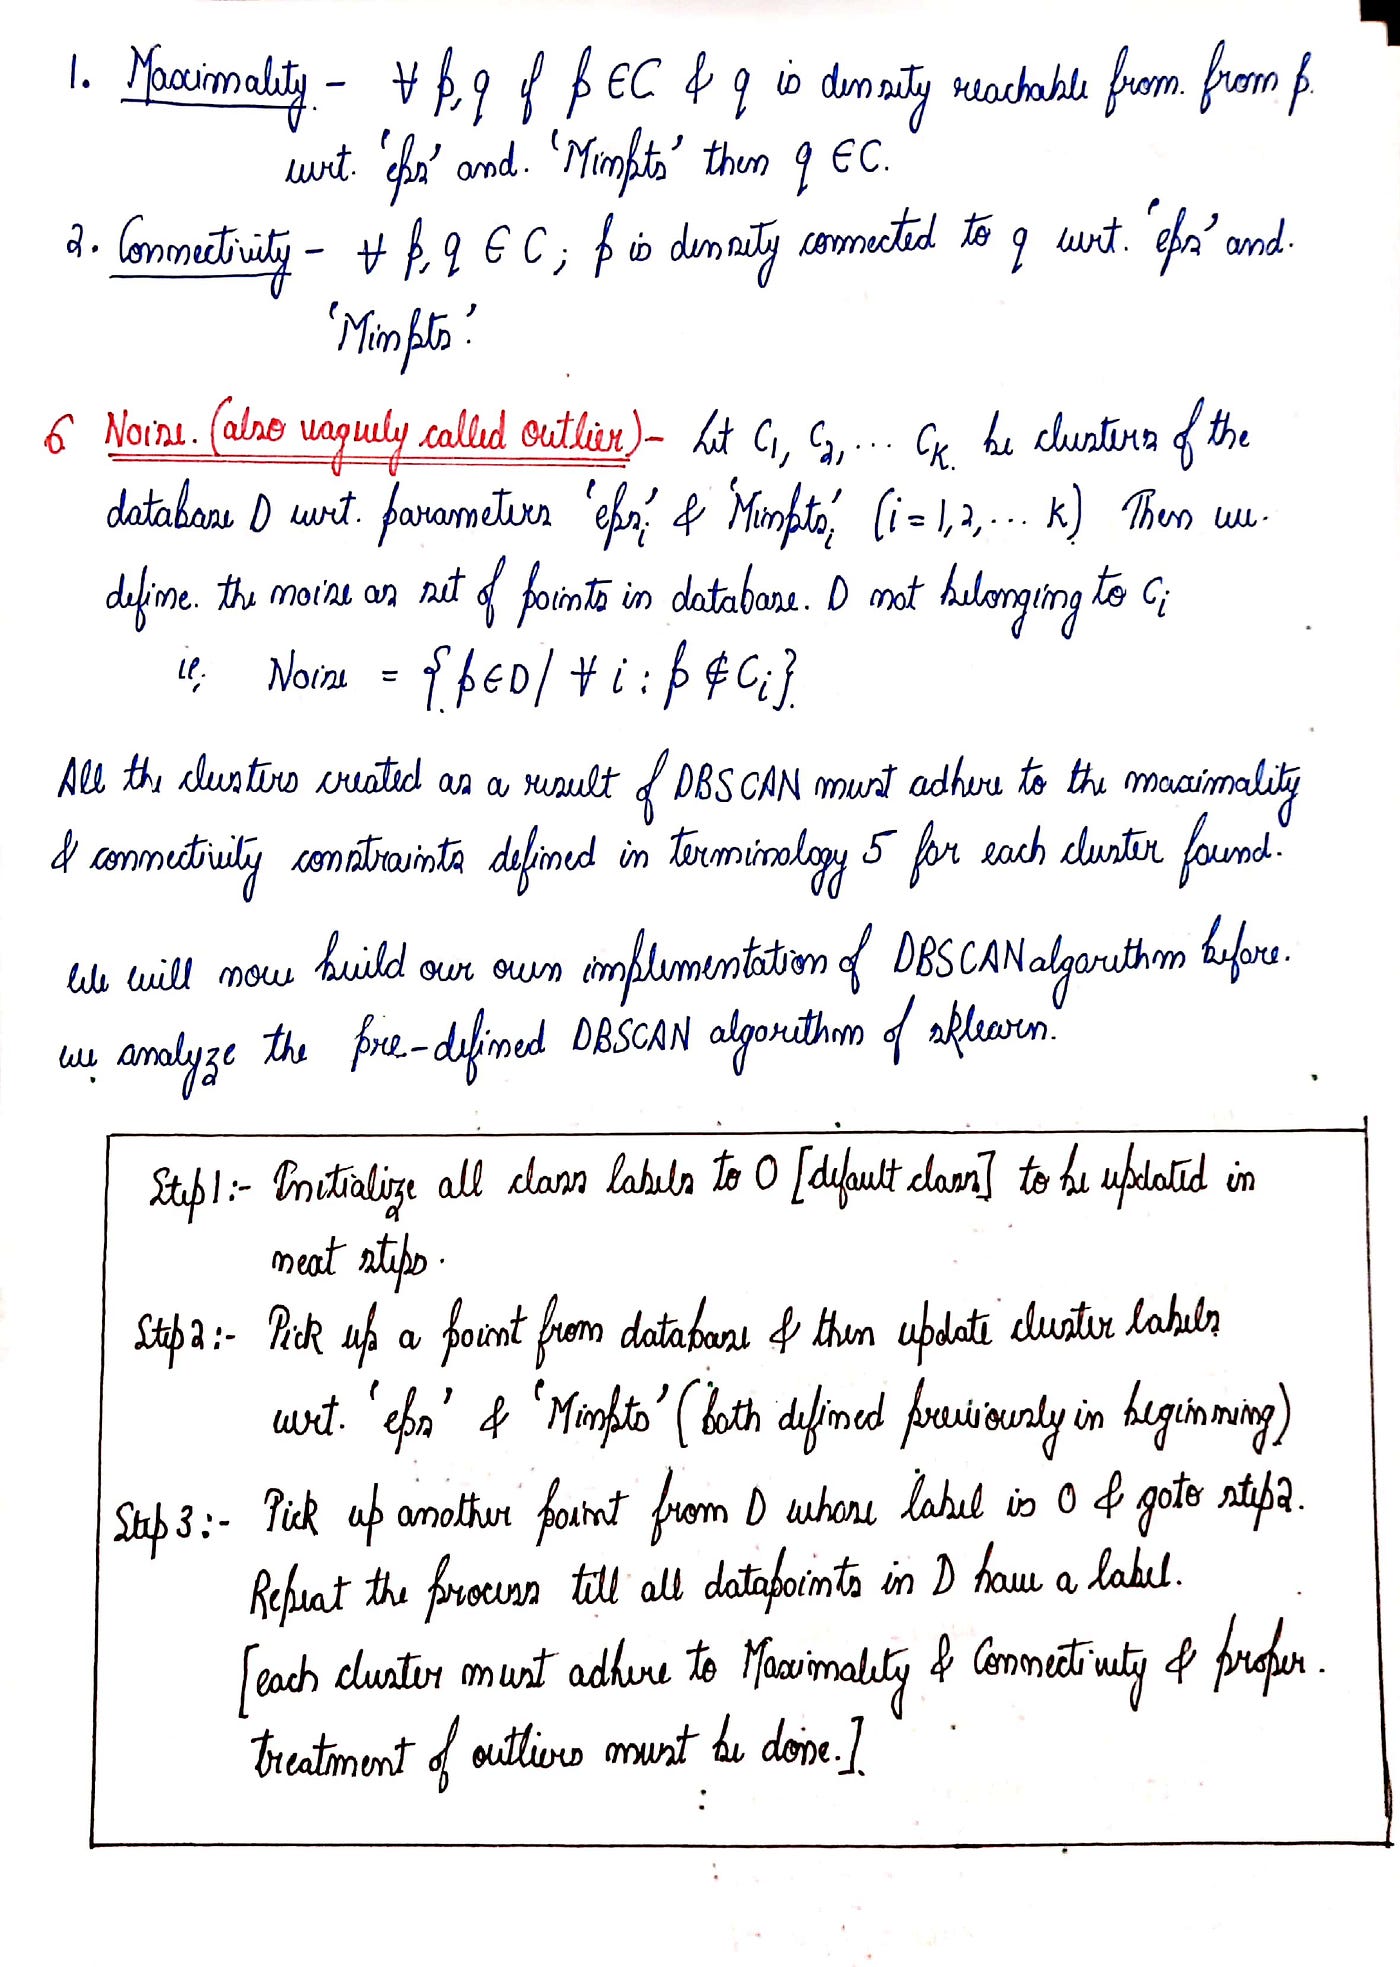 1. Maximality - ∀ p, q if p ∈ C & q is density reachable from. from p.
wrt. 'eps' and. 'Minpts' then q ∈ C.
2. Connectivity - ∀ p, q ∈ C; p is density connected to q wrt. 'eps' and.
'Minpts'.
6 Noise. (also vaguely called outlier) - Let C₁, C₂, ... C_K. be clusters of the
database D wrt. parameters 'eps'ᵢ & 'Minpts'ᵢ (i = 1, 2, ... K) Then we.
define. the noise as set of points in database. D not belonging to Cᵢ
ie; Noise = {p ∈ D / ∀ i : p ∉ Cᵢ}
All the clusters created as a result of DBSCAN must adhere to the maximality
& connectivity constraints defined in terminology 5 for each cluster found.
We will now build our own implementation of DBSCAN algorithm before.
we analyze the pre-defined DBSCAN algorithm of sklearn.
Step 1 :- Initialize all class labels to 0 [default class] to be updated in
next steps.
Step 2 :- Pick up a point from database & then update cluster labels
wrt. 'eps' & 'Minpts' (both defined previously in beginning)
Step 3 :- Pick up another point from D whose label is 0 & goto step 2.
Repeat the process till all datapoints in D have a label.
[each cluster must adhere to Maximality & Connectivity & proper.
treatment of outliers must be done.]